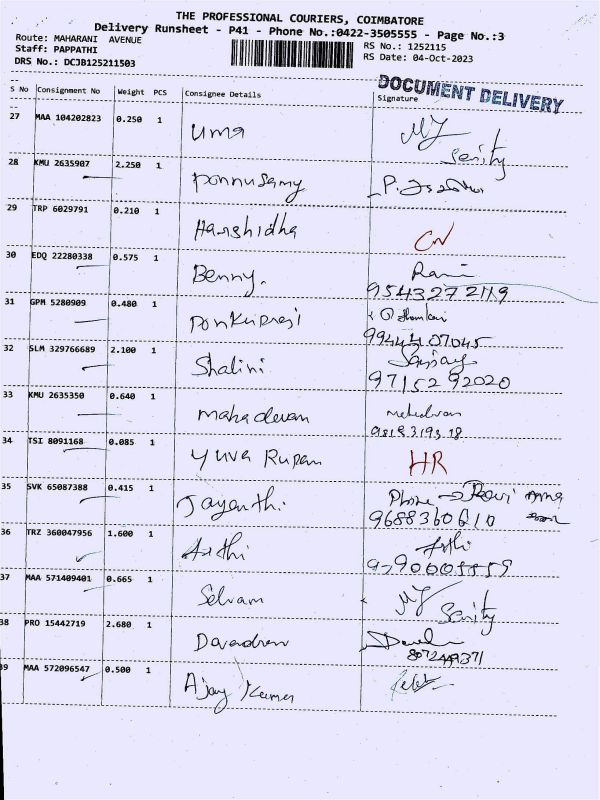 THE PROFESSIONAL COURIERS, COIMBATORE
Delivery Runsheet - P41 - Phone No.:0422-3505555 - Page No.:3
Route: MAHARANI AVENUE
RS No.: 1252115
Staff: PAPPATHI
RS Date: 04-Oct-2023
DRS No.: DCJB125211503
DOCUMENT DELIVERY
S No Consignment No Weight PCS Consignee Details Signature
27 MAA 104202823 0.250 1 Uma
28 KMU 2635907 2.250 1 Ponnusamy
29 TRP 6029791 0.210 1 Harshidha CN
30 EDQ 22280338 0.575 1 Benny. Rani
9543272119
31 GPM 5280909 0.480 1
9944407045
32 SLM 329766689 2.100 1 Shalini Sanjay
9715292020
33 KMU 2635350 0.640 1 mahadevan
34 TSI 8091168 0.085 1 Yuva Rupan HR
35 SVK 65087388 0.415 1 Jayanthi Phone → Ravi
9688360610
36 TRZ 360047956 1.600 1 Arthi Arthi
37 MAA 571409401 0.665 1 Selvam
38 PRO 15442719 2.680 1
39 MAA 572096547 0.500 1 Ajay Kumar